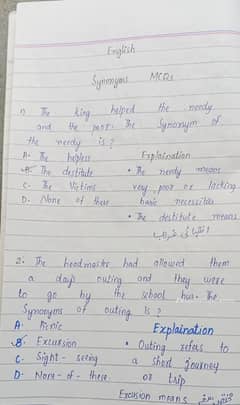 English
Synonyms MCQs
1) The king helped the needy
and the poor. The Synonym of
the needy is?
A. The helpless
B. The destitute
C. The Victims
D. None of these
Explaination
• The needy means
very poor or lacking
basic necessities
• The destitute means
2. The headmaster had allowed them
a days outing and they were
to go by the school bus. The
Synonyms of outing is?
A. Picnic
B. Excursion
C. Sight-seeing
D. None-of-these
Explaination
• Outing refers to
a short journey
or trip
Excusion means